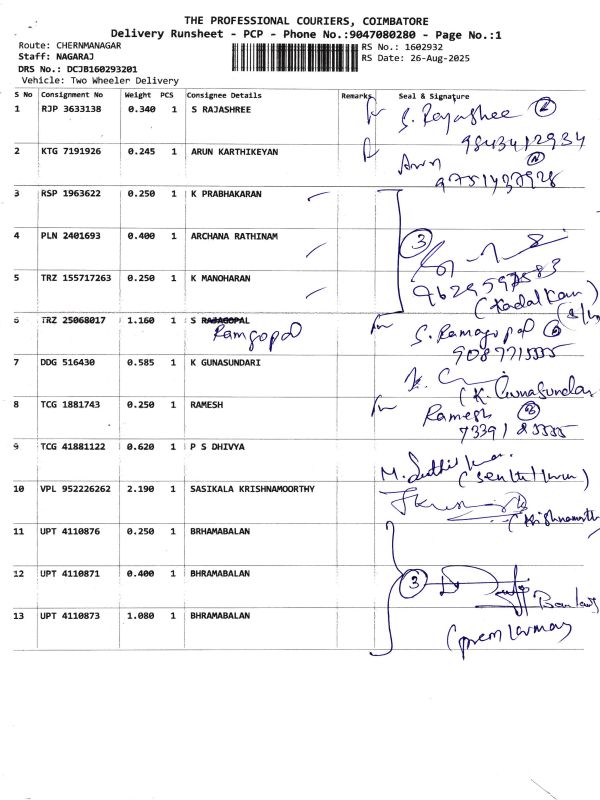 THE PROFESSIONAL COURIERS, COIMBATORE
Delivery Runsheet - PCP - Phone No.:9047080280 - Page No.:1
Route: CHERNMANAGAR
RS No.: 1602932
Staff: NAGARAJ
RS Date: 26-Aug-2025
DRS No.: DCJB160293201
Vehicle: Two Wheeler Delivery
S No Consignment No Weight PCS Consignee Details Remarks Seal & Signature
1 RJP 3633138 0.340 1 S RAJASHREE S. Rajashee
9843412934
2 KTG 7191926 0.245 1 ARUN KARTHIKEYAN Arun
9751437928
3 RSP 1963622 0.250 1 K PRABHAKARAN
4 PLN 2401693 0.400 1 ARCHANA RATHINAM 3
5 TRZ 155717263 0.250 1 K MANOHARAN
6 TRZ 25068017 1.160 1 S RAJAGOPAL S. Ramagopal
Ramgopal 9087715555
7 DDG 516430 0.585 1 K GUNASUNDARI
(K. Gunasundar
8 TCG 1881743 0.250 1 RAMESH Ramesh
7339185555
9 TCG 41881122 0.620 1 P S DHIVYA
10 VPL 952226262 2.190 1 SASIKALA KRISHNAMOORTHY
11 UPT 4110876 0.250 1 BRHAMABALAN
12 UPT 4110871 0.400 1 BHRAMABALAN 3
13 UPT 4110873 1.080 1 BHRAMABALAN